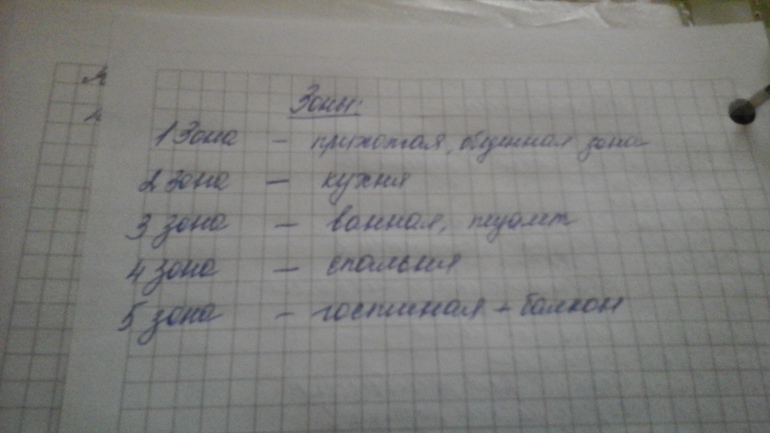 Зоны:
1 Зона – прихожая, обеденная зона
2 зона – кухня
3 зона – ванная, туалет
4 зона – спальня
5 зона – гостиная + балкон